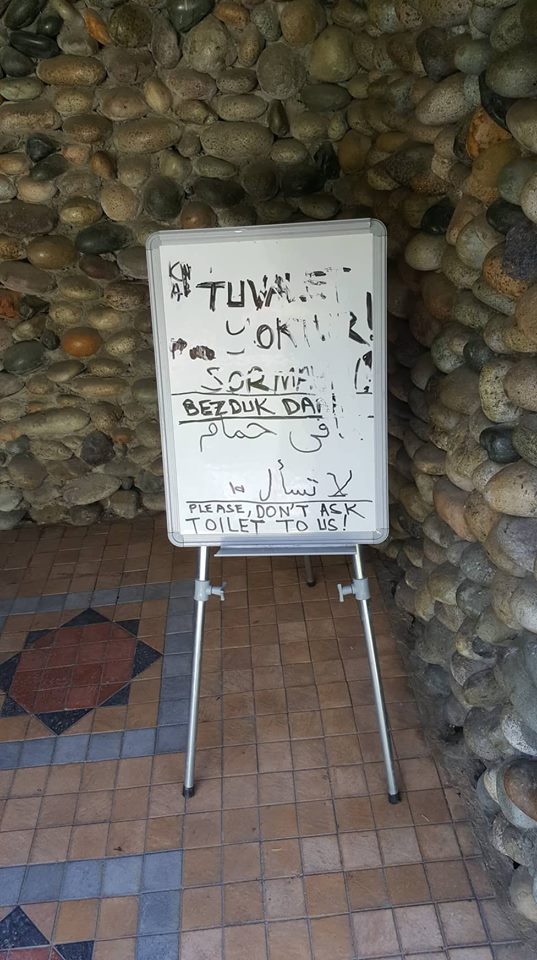 TUVALET
YOKTUR!
SORMA
BEZDUK DA
فى حمام
لا تسأل
PLEASE, DON'T ASK
TOILET TO US!